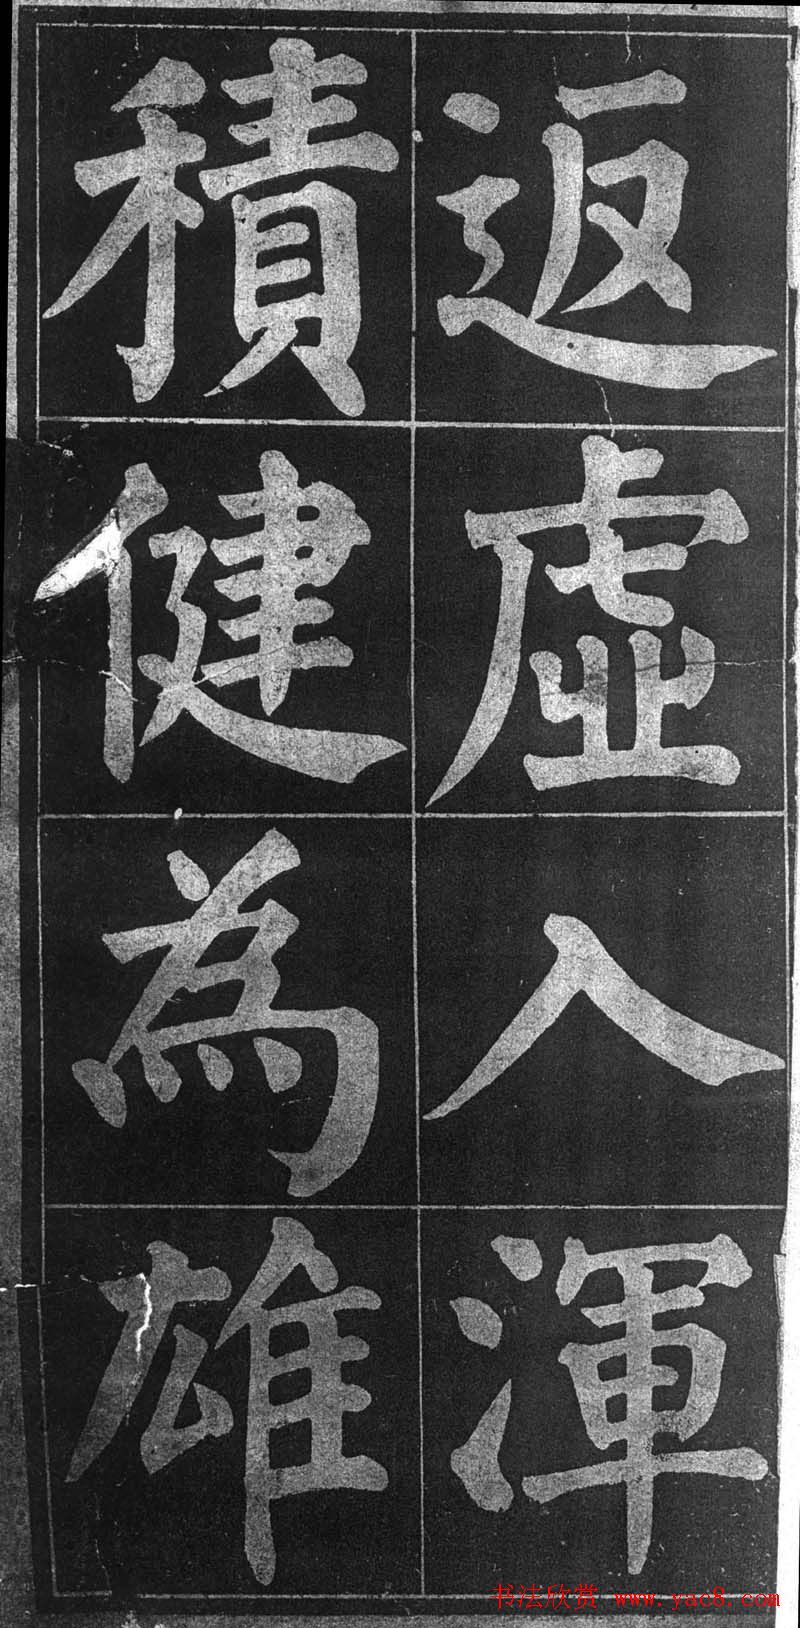 返虛入渾
積健為雄
书法欣赏 www.yac8.com